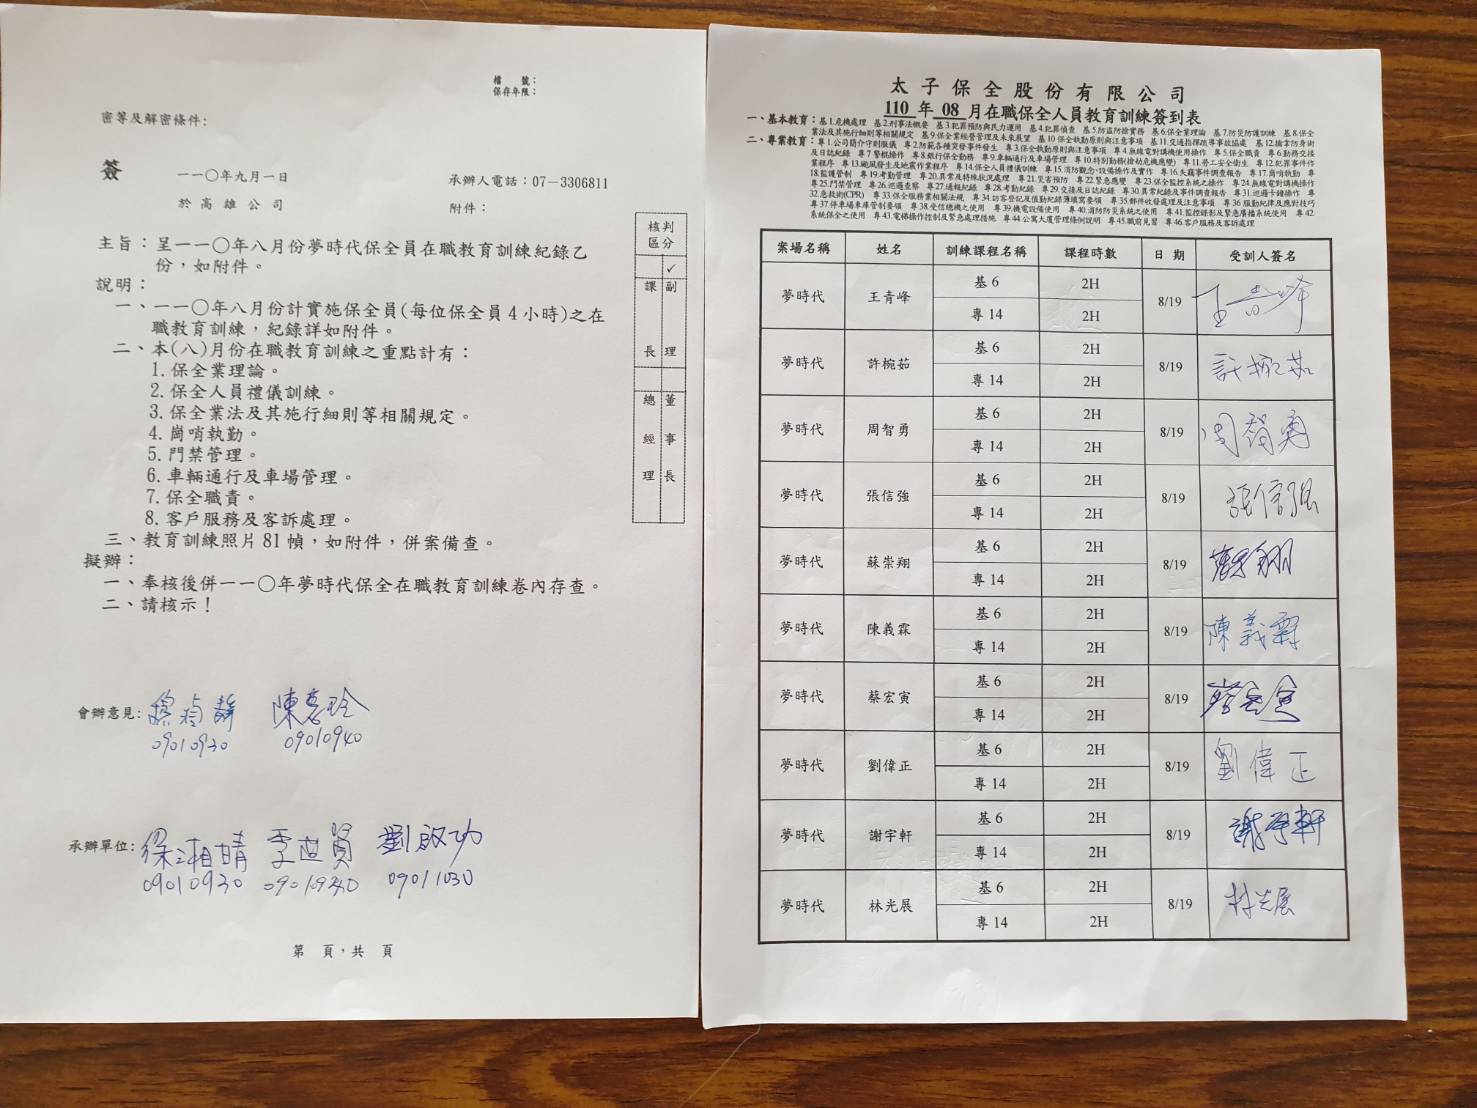 檔　號：
保存年限：
密等及解密條件：
簽
一一〇年九月一日
於高雄公司
承辦人電話：07－3306811
附件：
核判
區分
✓
課長
副理
總經理
董事長
主旨：呈一一〇年八月份夢時代保全員在職教育訓練紀錄乙
份，如附件。
說明：
一、一一〇年八月份計實施保全員(每位保全員4小時)之在
職教育訓練，紀錄詳如附件。
二、本(八)月份在職教育訓練之重點計有：
1.保全業理論。
2.保全人員禮儀訓練。
3.保全業法及其施行細則等相關規定。
4.崗哨執勤。
5.門禁管理。
6.車輛通行及車場管理。
7.保全職責。
8.客戶服務及客訴處理。
三、教育訓練照片81幀，如附件，併案備查。
擬辦：
一、奉核後併一一〇年夢時代保全在職教育訓練卷內存查。
二、請核示！
會辦意見：
09010930 09010940
承辦單位： 劉啟功
09010930 09010940 09011030
第　頁，共　頁
太子保全股份有限公司
110 年 08 月在職保全人員教育訓練簽到表
一、基本教育：基1.危機處理 基2.刑事法概要 基3.犯罪預防與民力運用 基4.犯罪偵查 基5.防盜防搶實務 基6.保全業理論 基7.防災防護訓練 基8.保全
業法及其施行細則等相關規定 基9.保全業經營管理及未來展望 基10.保全執勤原則與注意事項 基11.交通指揮疏導事故協處 基12.擒拿防身術
二、專業教育：專1.公司簡介守則服儀 專2.防範各種突發事件發生 專3.保全執勤原則與注意事項 專4.無線電對講機使用操作 專5.保全職責 專6.勤務交接
及日誌紀錄 專7.警棍操作 專8.銀行保全勤務 專9.車輛通行及車場管理 專10.特別勤務(搶劫危機應變) 專11.勞工安全衛生 專12.犯罪事件作
業程序 專13.颱風發生及地震作業程序 專14.保全人員禮儀訓練 專15.消防觀念、設備操作及實作 專16.失竊事件調查報告 專17.崗哨執勤 專
18.監護管制 專19.考勤管理 專20.異常及特殊狀況處理 專21.災害預防 專22.緊急應變 專23.保全監控系統之操作 專24.無線電對講機操作
專25.門禁管理 專26.巡邏查察 專27.通報紀錄 專28.考勤紀錄 專29.交接及日誌紀錄 專30.異常紀錄及事件調查報告 專31.巡邏卡鐘操作 專
32.急救術(CPR) 專33.保全服務業相關法規 專34.訪客登記及值勤紀錄簿填寫要領 專35.郵件收發處理及注意事項 專36.服勤紀律及應對技巧
專37.停車場車庫管制要領 專38.受信總機之使用 專39.機電設備使用 專40.消防防災系統之使用 專41.監控錄影及緊急廣播系統使用 專42.
系統保全之使用 專43.電梯操作控制及緊急處理措施 專44.公寓大廈管理條例說明 專45.職前見習 專46.客戶服務及客訴處理
案場名稱 姓名 訓練課程名稱 課程時數 日期 受訓人簽名
夢時代 王青峰 基6 2H 8/19 王青峰
專14 2H
夢時代 許椀茹 基6 2H 8/19 許椀茹
專14 2H
夢時代 周智勇 基6 2H 8/19 周智勇
專14 2H
夢時代 張信強 基6 2H 8/19 張信強
專14 2H
夢時代 蘇崇翔 基6 2H 8/19 蘇崇翔
專14 2H
夢時代 陳義霖 基6 2H 8/19 陳義霖
專14 2H
夢時代 蔡宏寅 基6 2H 8/19 蔡宏寅
專14 2H
夢時代 劉偉正 基6 2H 8/19 劉偉正
專14 2H
夢時代 謝宇軒 基6 2H 8/19 謝宇軒
專14 2H
夢時代 林光展 基6 2H 8/19 林光展
專14 2H